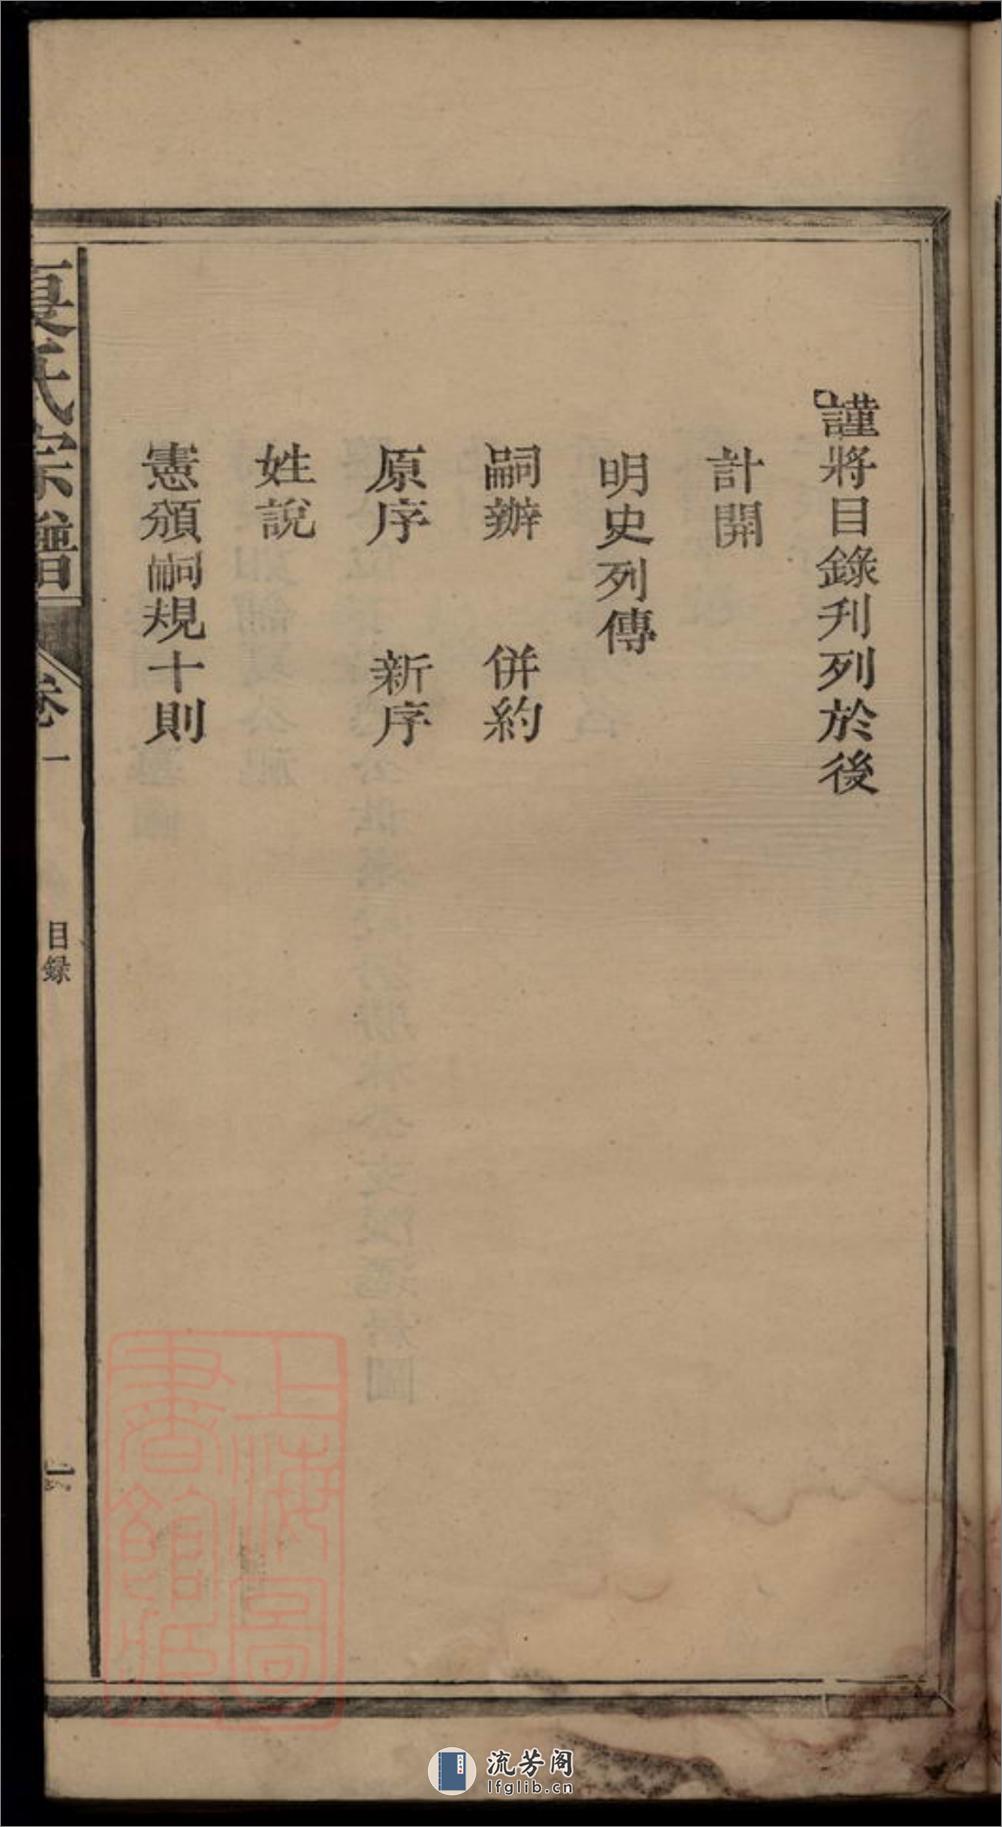 謹將目錄刋列於後
計開
明史列傳
嗣辦 併約
原序 新序
姓說
憲頒嗣規十則
夏氏宗譜
卷一
目錄
上海圖書館藏
流芳阁
lfglib.cn